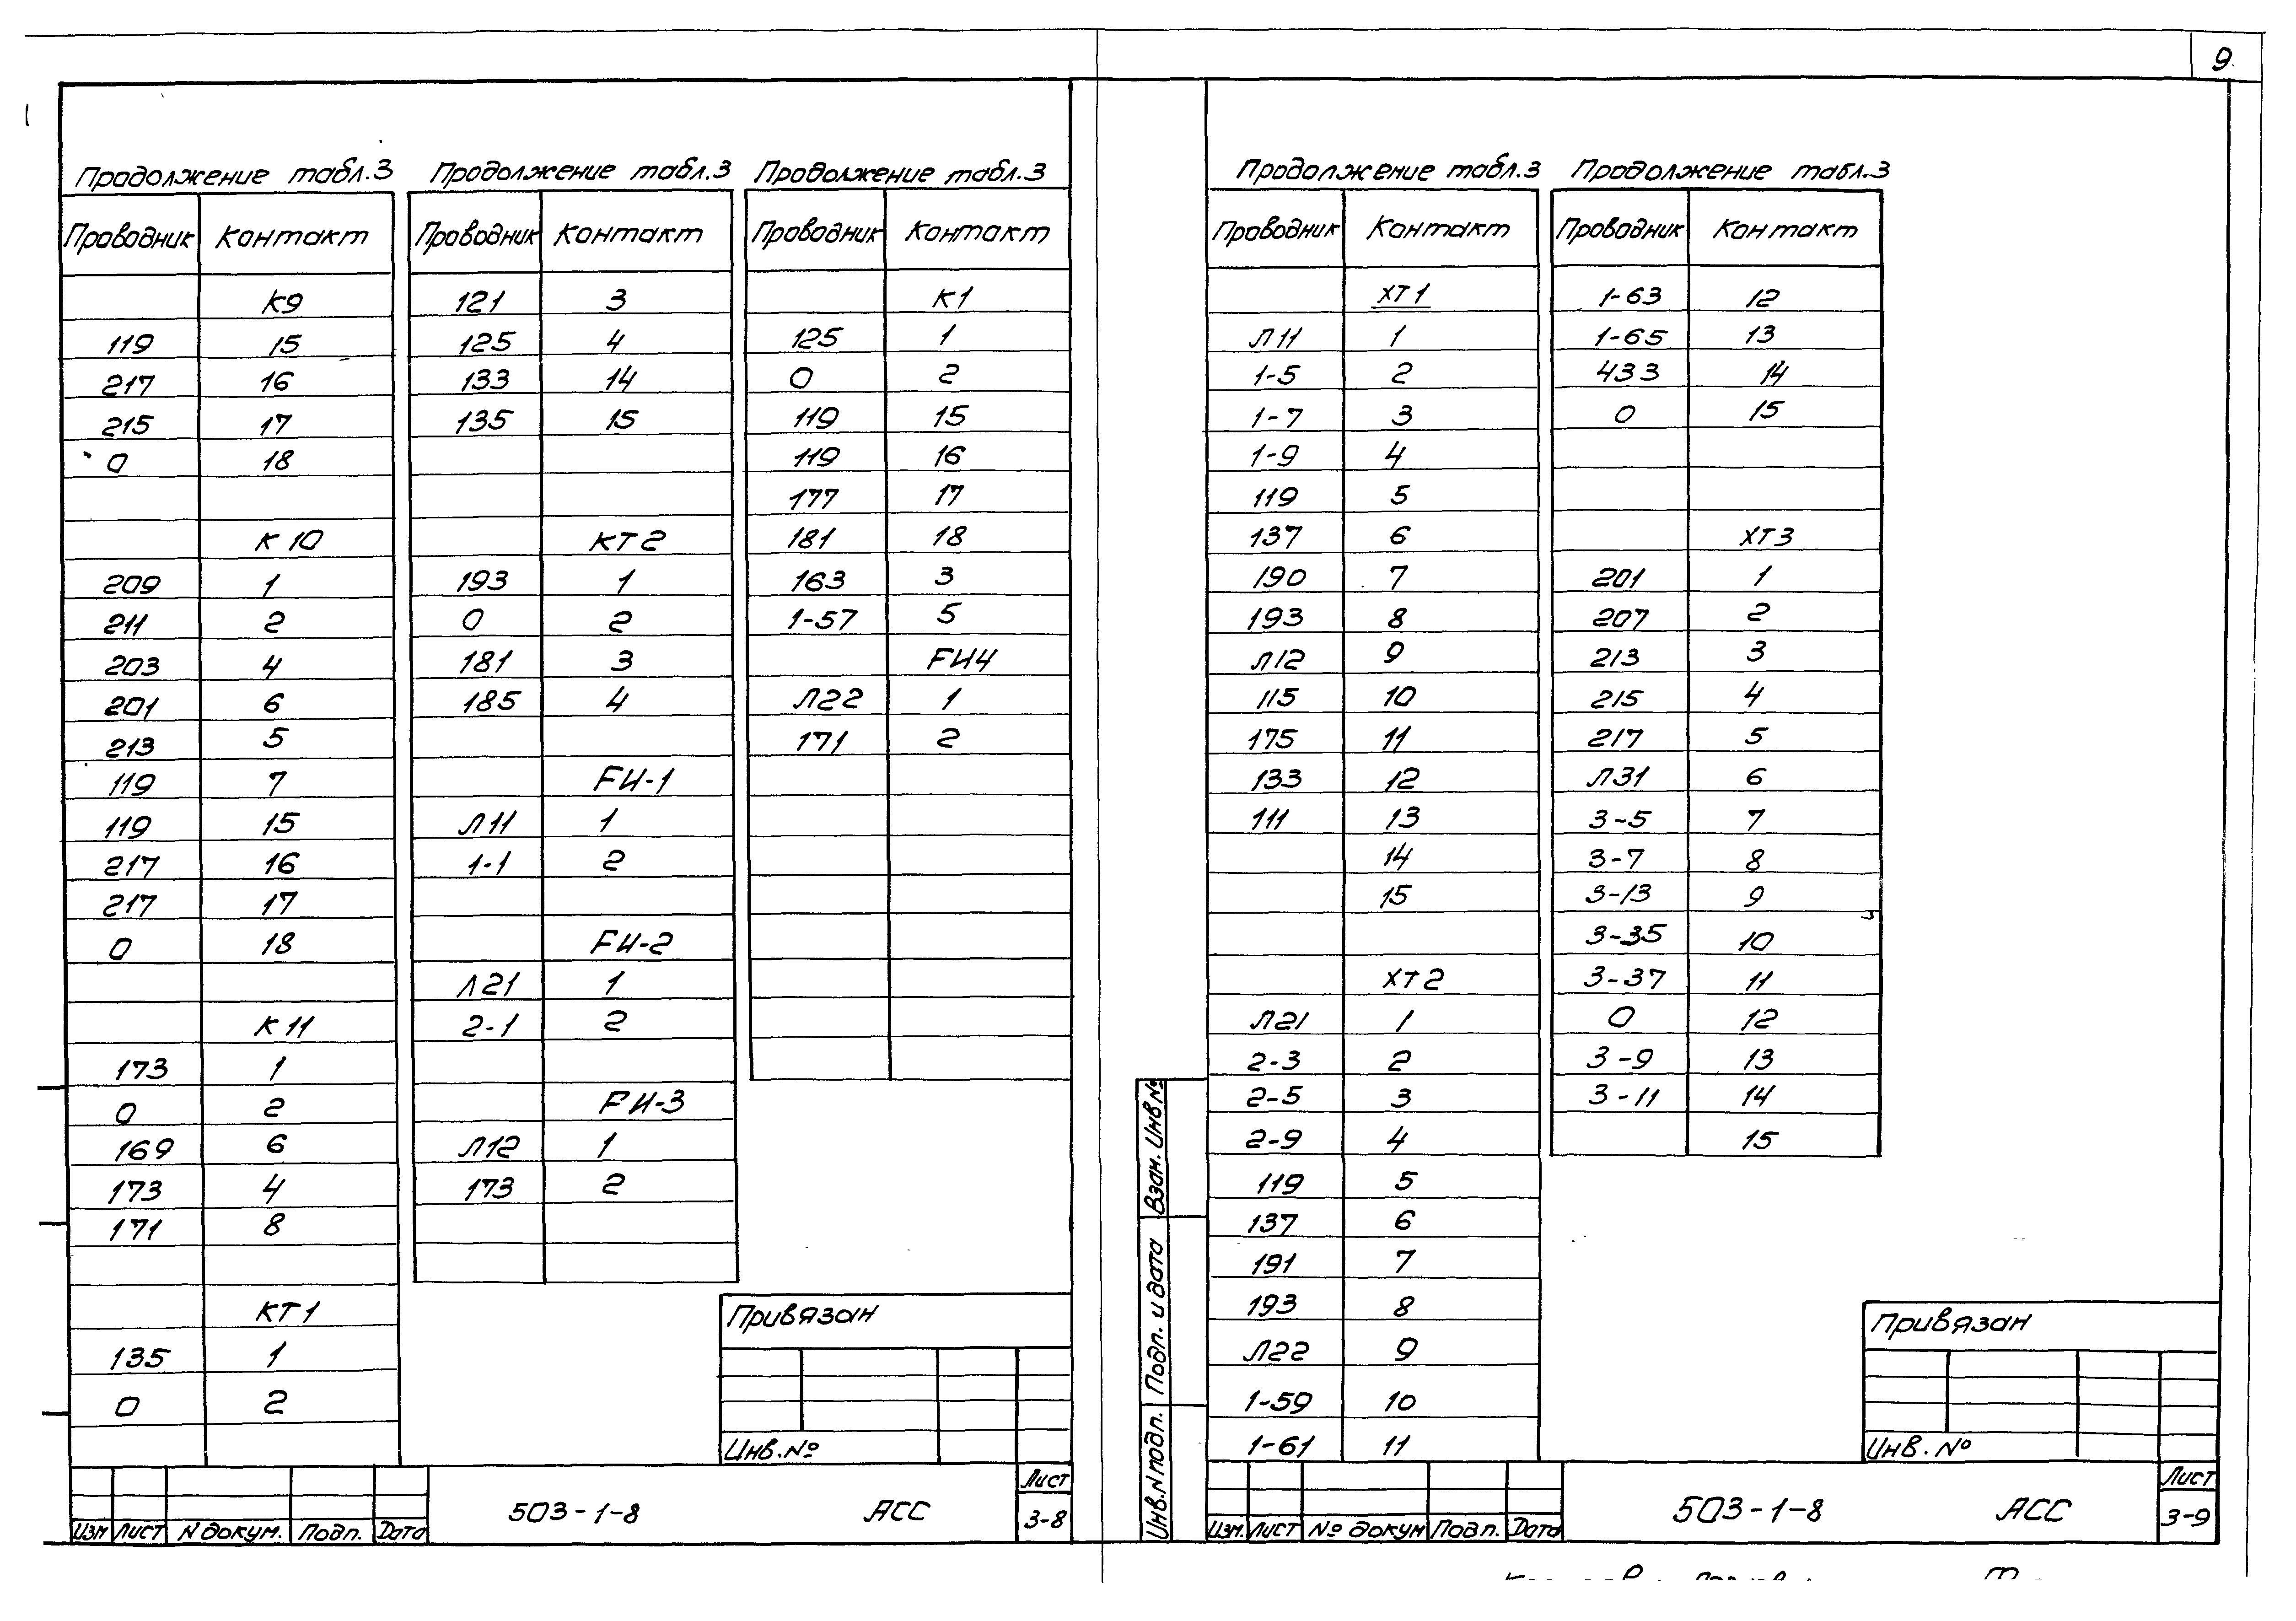 9
Продолжение табл.3
Проводник Контакт
К9
119 15
217 16
215 17
0 18
К 10
209 1
211 2
203 4
201 6
213 5
119 7
119 15
217 16
217 17
0 18
К 11
173 1
0 2
169 6
173 4
171 8
КТ1
135 1
0 2
Продолжение табл.3
Проводник Контакт
121 3
125 4
133 14
135 15
КТ2
193 1
0 2
181 3
185 4
FИ-1
Л11 1
1-1 2
FИ-2
Л21 1
2-1 2
FИ-3
Л12 1
173 2
Продолжение табл.3
Проводник Контакт
К1
125 1
0 2
119 15
119 16
177 17
181 18
163 3
1-57 5
FИ4
Л22 1
171 2
Привязан
Инв.№
Изм Лист N докум. Подп. Дата
503-1-8 АСС
Лист
3-8
Продолжение табл.3
Проводник Контакт
ХТ1
Л11 1
1-5 2
1-7 3
1-9 4
119 5
137 6
190 7
193 8
Л12 9
115 10
175 11
133 12
111 13
14
15
ХТ2
Л21 1
2-3 2
2-5 3
2-9 4
119 5
137 6
191 7
193 8
Л22 9
1-59 10
1-61 11
Продолжение табл.3
Проводник Контакт
1-63 12
1-65 13
433 14
0 15
ХТ3
201 1
207 2
213 3
215 4
217 5
Л31 6
3-5 7
3-7 8
3-13 9
3-35 10
3-37 11
0 12
3-9 13
3-11 14
15
Взам. Инв №
Подп. и дата
Инв.N подл.
Привязан
Инв. №
Изм. Лист № докум Подп. Дата
503-1-8 АСС
Лист
3-9